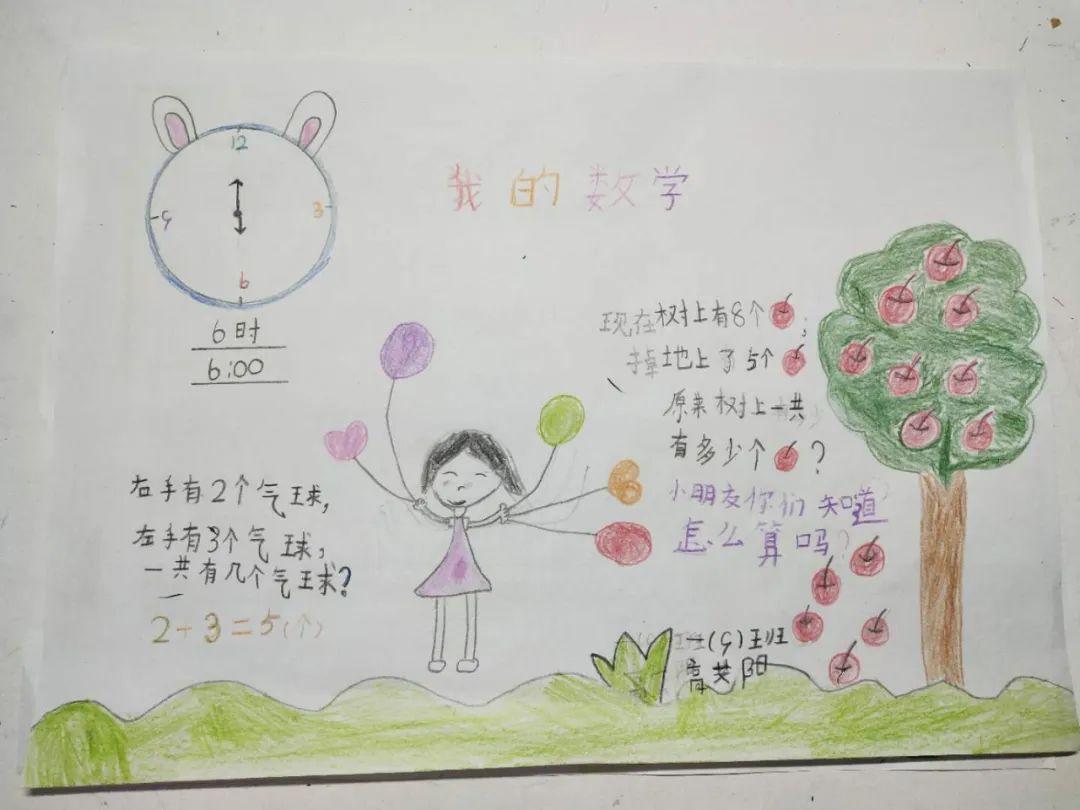 我的数学
12
9
3
6
6时
6:00
现在树上有8个;
掉地上了5个
原来树上一共
有多少个?
小朋友你们知道
怎么算吗?
右手有2个气球,
左手有3个气球,
一共有几个气球?
2+3=5(个)
一(9)班